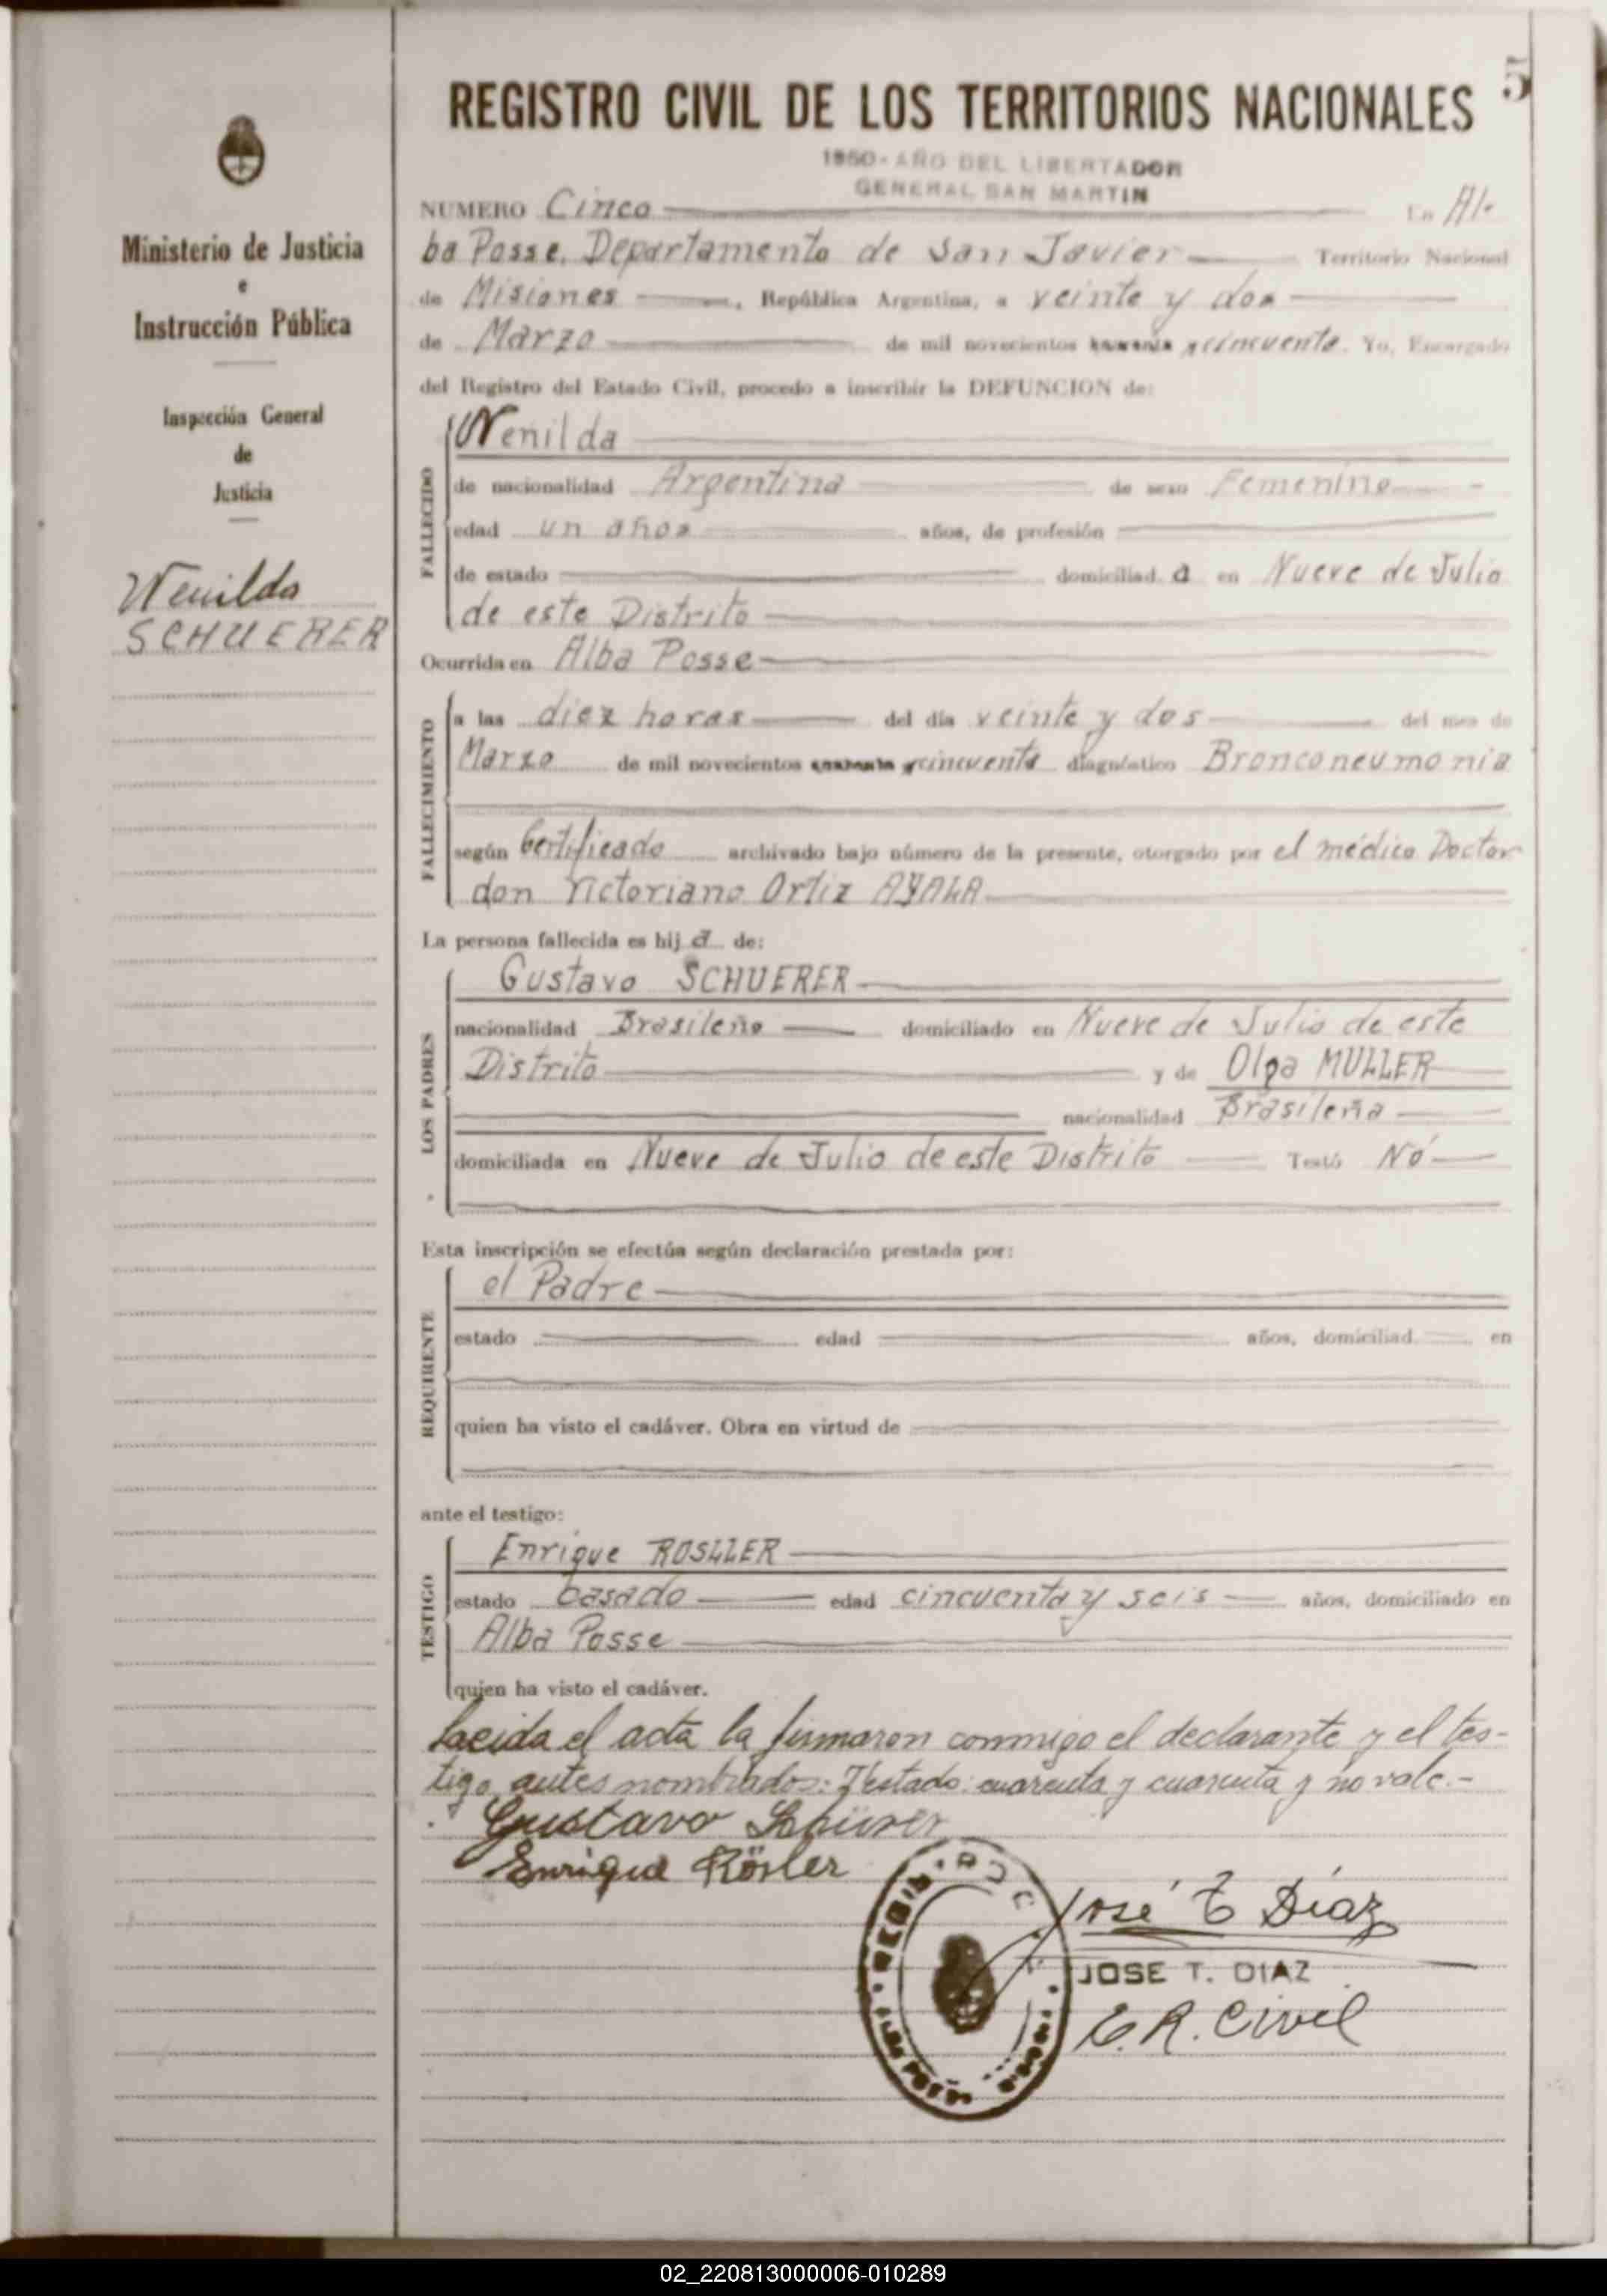 5
REGISTRO CIVIL DE LOS TERRITORIOS NACIONALES
1950 - AÑO DEL LIBERTADOR
GENERAL SAN MARTIN
Ministerio de Justicia
e
Instrucción Pública
Inspección General
de
Justicia
Wenilda
SCHUERER
NUMERO Cinco En Al-
ba Posse, Departamento de San Javier Territorio Nacional
de Misiones, República Argentina, a veinte y dos
de Marzo de mil novecientos cuarenta y cincuenta. Yo, Encargado
del Registro del Estado Civil, procedo a inscribir la DEFUNCION de:
FALLECIDO
Wenilda
de nacionalidad Argentina de sexo Femenino
edad un años años, de profesión
de estado domiciliad a en Nueve de Julio
de este Distrito
Ocurrida en Alba Posse
FALLECIMIENTO
a las diez horas del día veinte y dos del mes de
Marzo de mil novecientos cuarenta y cincuenta diagnóstico Bronconeumonia
según Certificado archivado bajo número de la presente, otorgado por el médico Doctor
don Victoriano Ortiz AYALA
La persona fallecida es hij a de:
LOS PADRES
Gustavo SCHUERER
nacionalidad Brasileño domiciliado en Nueve de Julio de este
Distrito y de Olga MULLER
nacionalidad Brasileña
domiciliada en Nueve de Julio de este Distrito Testó Nó
Esta inscripción se efectúa según declaración prestada por:
REQUIRENTE
el Padre
estado edad años, domiciliad en
quien ha visto el cadáver. Obra en virtud de
ante el testigo:
TESTIGO
Enrique ROSLLER
estado Casado edad cincuenta y seis años, domiciliado en
Alba Posse
quien ha visto el cadáver.
Laeida el acta la firmaron conmigo el declarante y el tes-
tigo, antes nombrados: Testado: cuarenta y cuarenta y no vale.-
Gustavo Schürer
Enrique Rösler
José T Díaz
JOSE T. DIAZ
E. R. Civil
02_220813000006-010289